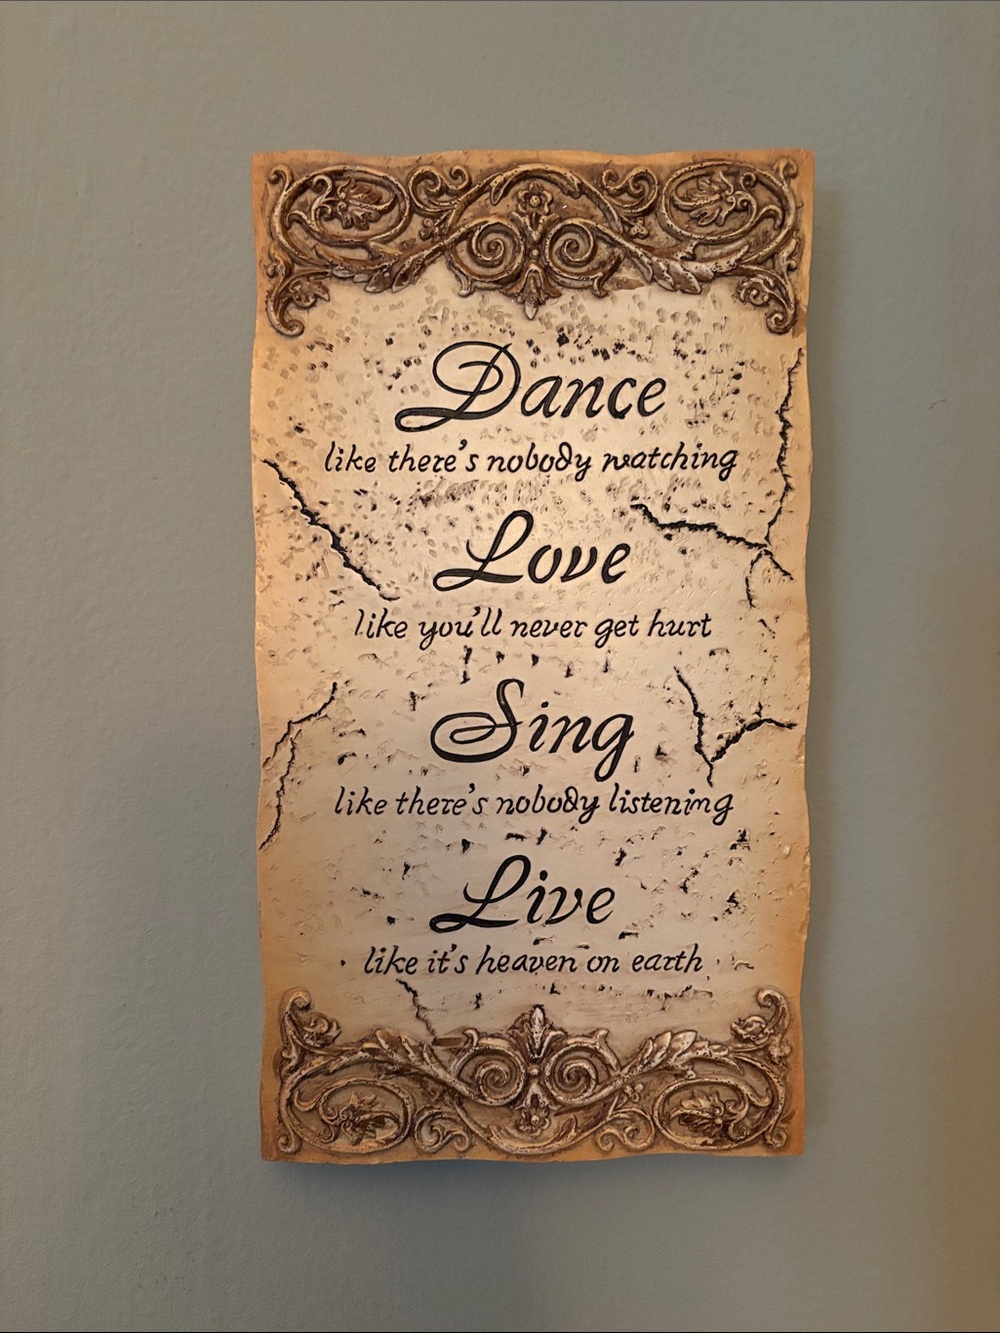 Dance
like there's nobody watching
Love
like you'll never get hurt
Sing
like there's nobody listening
Live
like it's heaven on earth